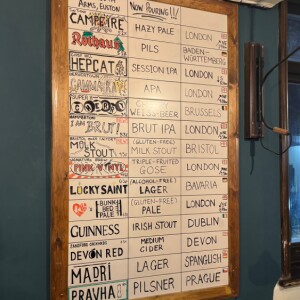 ARMS, EUSTON
NOW POURING!!!
CAMPFIRE HAZY PALE LONDON
Rothaus PILS BADEN-WÜRTTEMBERG
HEPCAT SESSION IPA LONDON
GAMMA RAY APA LONDON
SUPER 8 WEISS-BEER BRUSSELS
HAMMERTON
I AM BRUT! BRUT IPA LONDON
MILK STOUT (GLUTEN-FREE) MILK STOUT BRISTOL
PINK TRIPLE-FRUITED GOSE LONDON
LUCKY SAINT (ALCOHOL-FREE) LAGER BAVARIA
BUNK BED PALE (GLUTEN-FREE) PALE LONDON
GUINNESS IRISH STOUT DUBLIN
SANDFORD ORCHARDS
DEVON RED MEDIUM CIDER DEVON
MADRÍ LAGER SPANGLISH
PRAVHA PILSNER PRAGUE